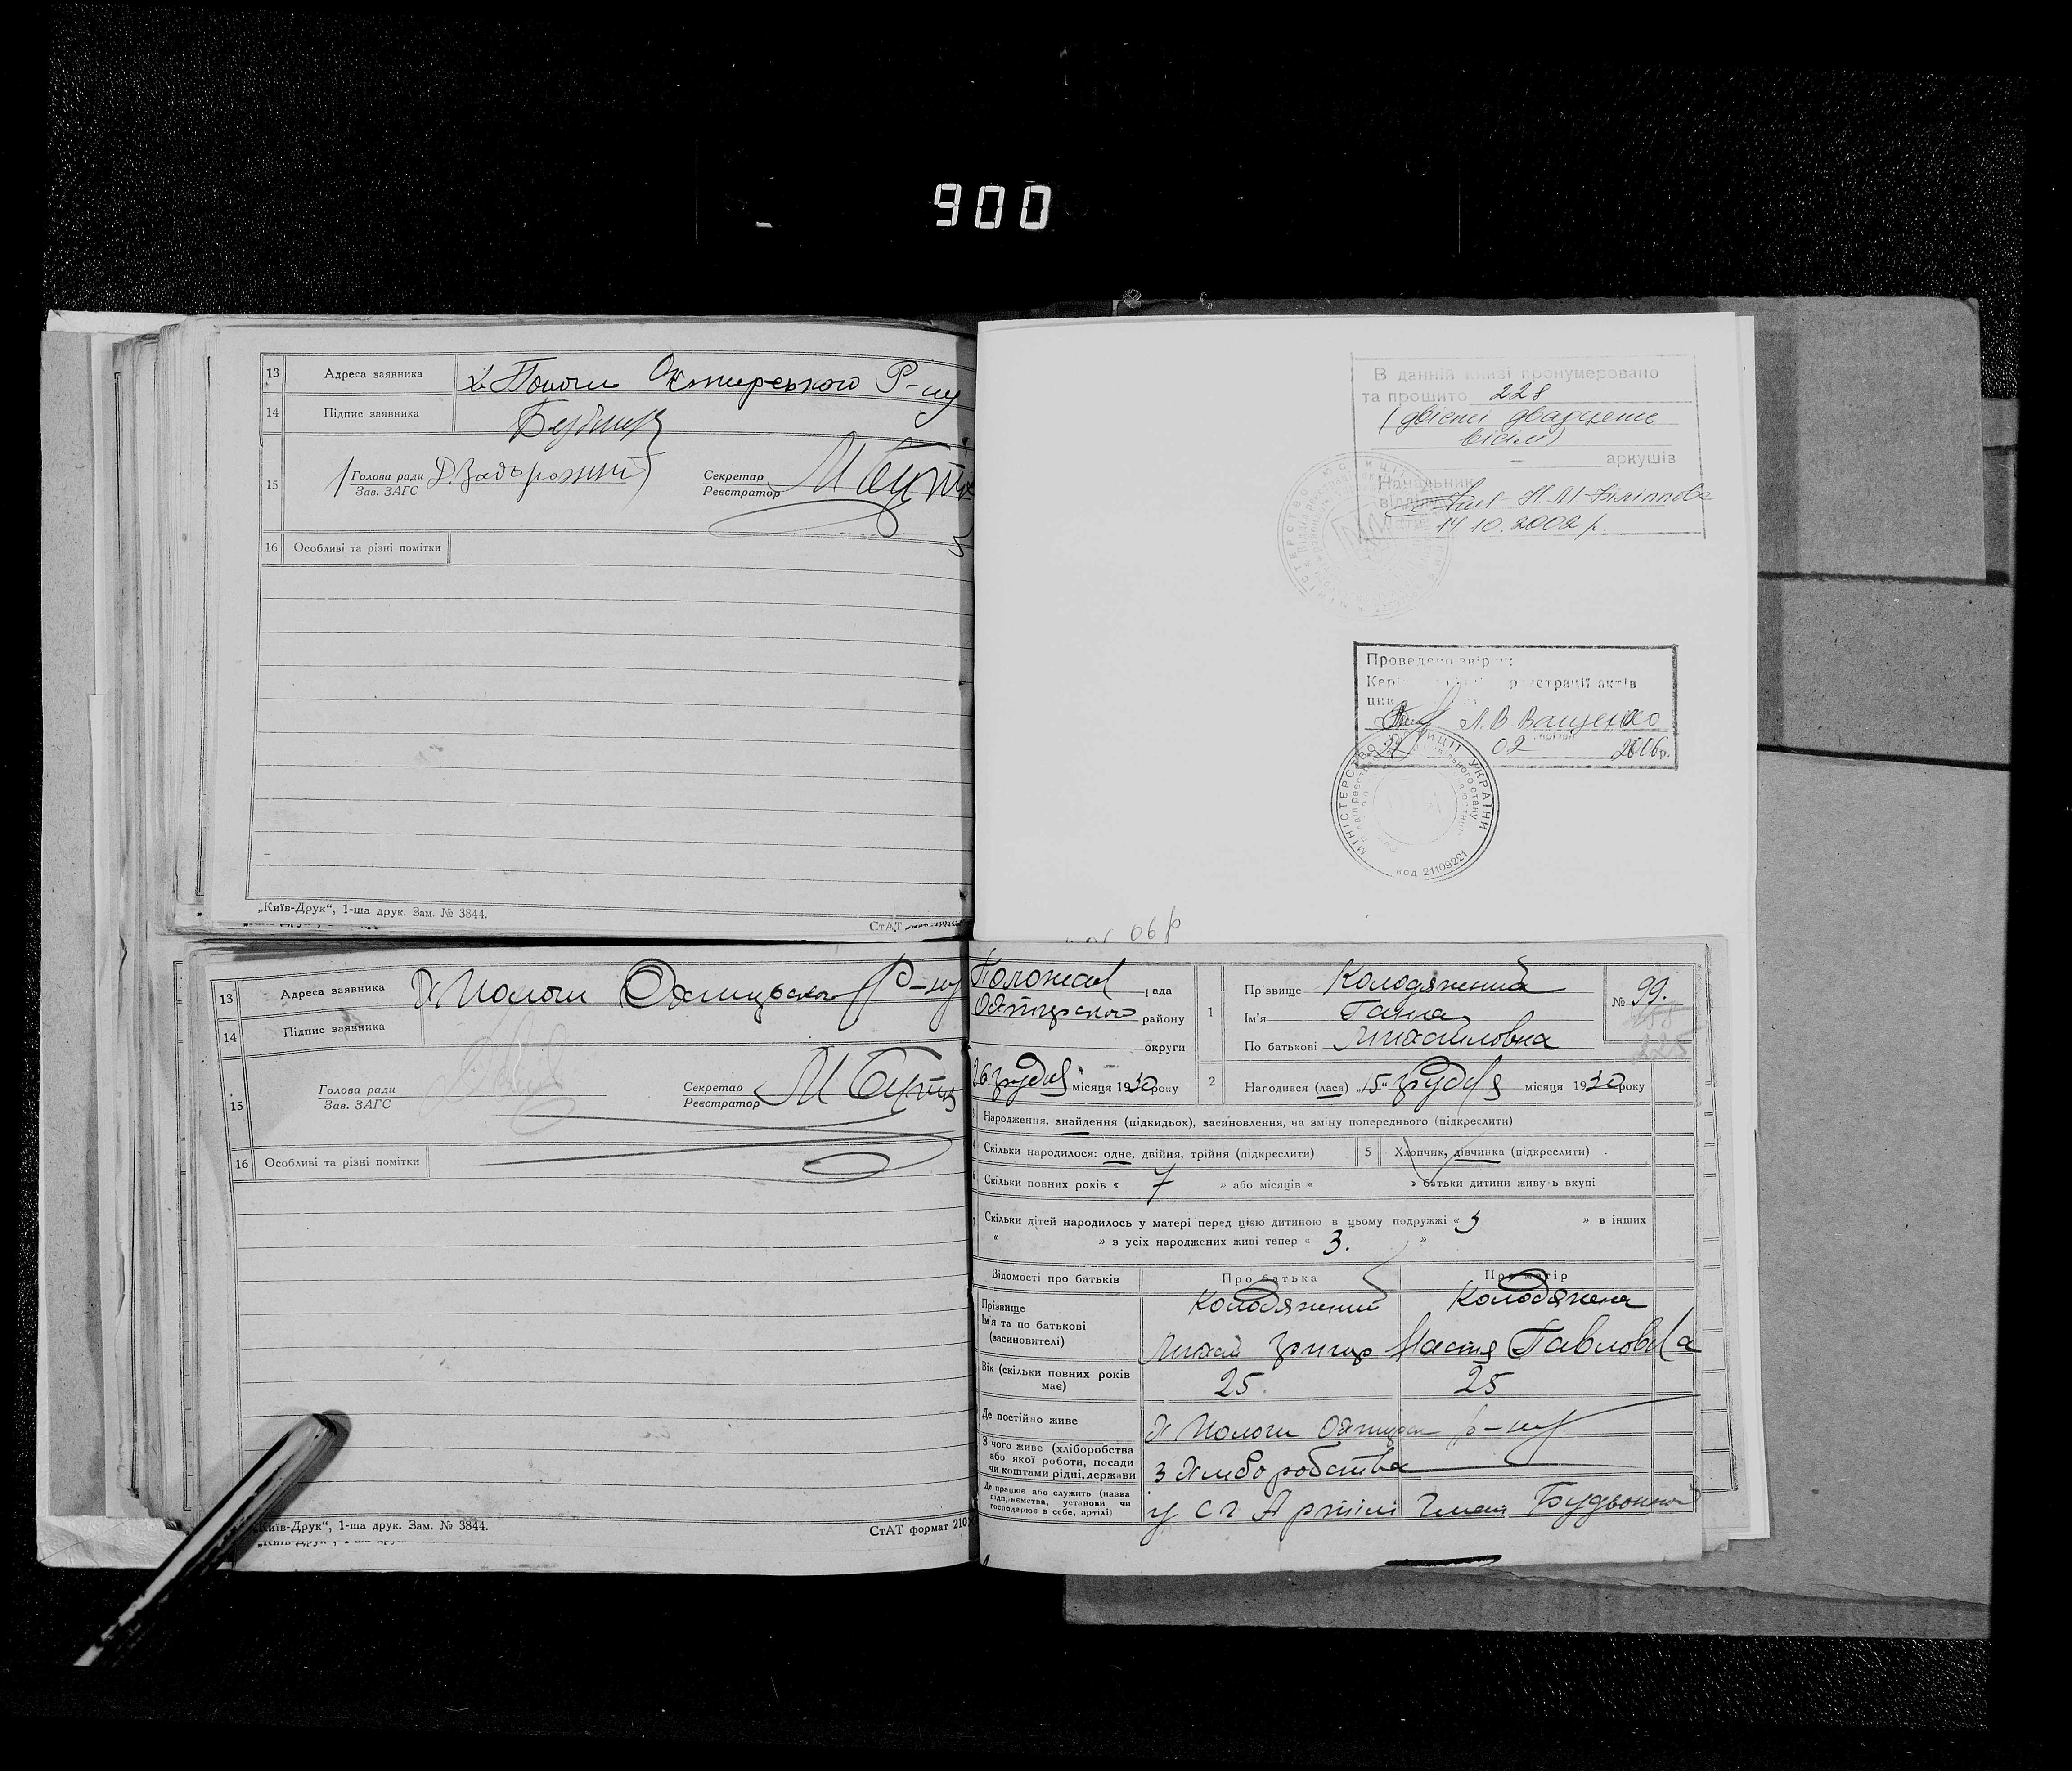 900
13 Адреса заявника х Пологи Охтирського Р-ну
14 Підпис заявника
15 Голова ради Зав. ЗАГС Д. Задорожний Секретар Реєстратор
16 Особливі та різні помітки
„Київ-Друк“, 1-ша друк. Зам. № 3844.
СтАТ
В данній книзі пронумеровано
та прошито 228
(двісті двадцять
вісім)
— аркушів
Начальник
відділу
14.10.2002 р.
Проведено звірку:
реєстрації актів
Л. В. Ващенко
02 2006р.
МІНІСТЕРСТВО ЮСТИЦІЇ УКРАЇНИ
код 21109221
06 р
13 Адреса заявника Х Пологи Охтирського Р-ну
14 Підпис заявника
15 Голова ради Зав. ЗАГС Секретар Реєстратор
16 Особливі та різні помітки
„Київ-Друк“, 1-ша друк. Зам. № 3844.
СтАТ формат 210
рада
району
округи
26 грудня місяця 1930 року
1 Прізвище Колодяжний
Ім'я Ганна
По батькові Михайловна
№ 99.
2 Народився (лася) „15“ грудня місяця 1930 року
Народження, знайдення (підкидьок), васиновлення, на зміну попереднього (підкреслити)
Скільки народилося: одне, двійня, трійня (підкреслити)
5 Хлопчик, дівчинка (підкреслити)
Скільки повних років « 7 » або місяців « » батьки дитини живуть вкупі
Скільки дітей народилось у матері перед цією дитиною в цьому подружжі « 3 » в інших
« » в усіх народжених живі тепер « 3. »
Відомості про батьків Про батька Про матір
Прізвище Ім'я та по батькові (васиновителі)
Колодяжний Колодяжна
Михай Григор Настя Павловна
Вік (скільки повних років має) 25. 25
Де постійно живе Х Пологи Охтирськ р-ну
З чого живе (хліборобства або якої роботи, посади чи коштами рідні, держави З Хліборобства
Де працює або служить (назва підприємства, установи чи господарює в себе, артілі) у С г Артілі Імені Будьонного